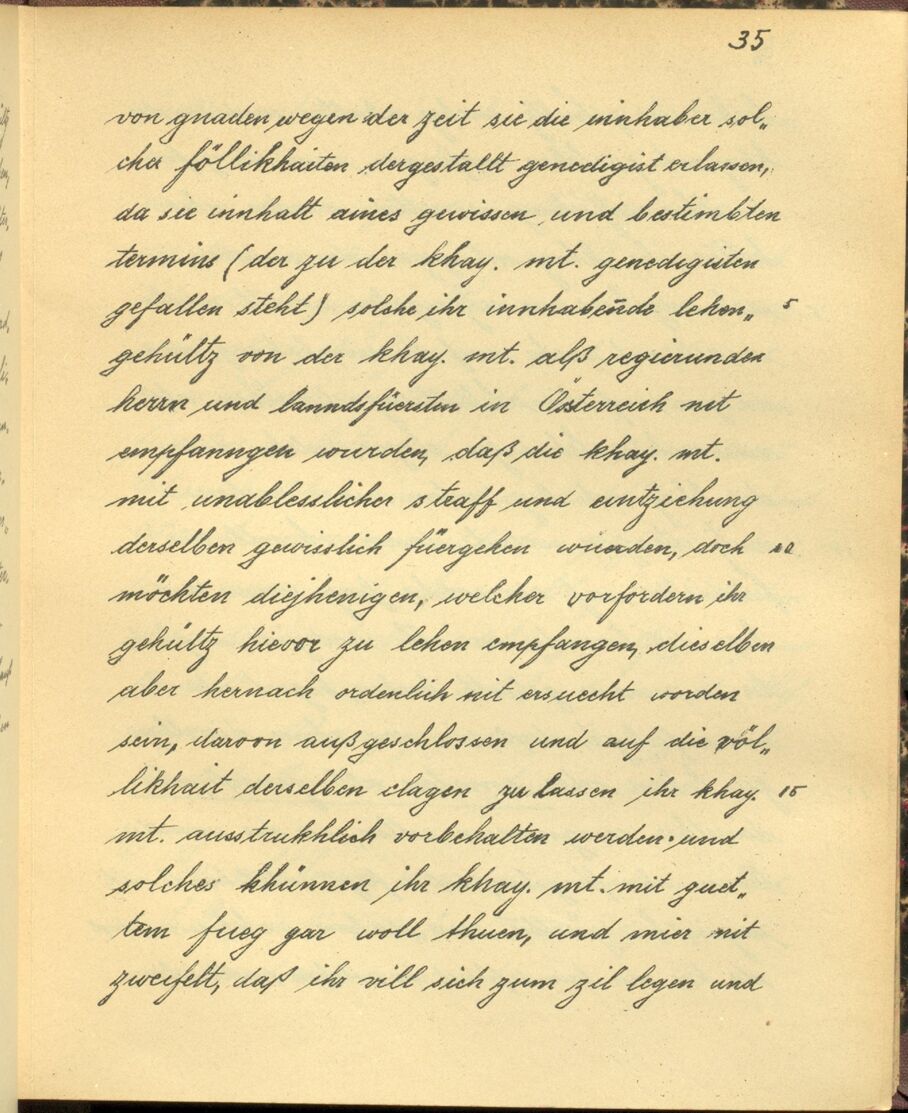 35
von gnaden wegen der zeit sie die innhaber sol„
cher föllikhaiten dergestallt genedigist erlassen,
da sie innhalt aines gewissen und bestimbten
termins (der zu der khay. mt. genedigisten
gefallen steht) solche ihr innhabende lehen„ 5
gehültz von der khay. mt. alß regierunden
herrn und lanndsfüersten in Österreich nit
empfanngen wurden, daß die khay. mt.
mit unablesslicher straff und entziehung
derselben gewisslich füergehen wuerden, doch 10
möchten diejhenigen, welcher vorfordern ihr
gehültz hievor zu lehen empfangen, dieselben
aber hernach ordenlich nit ersuecht worden
sein, davon außgeschlossen und auf die völ„
likhait derselben clagen zu lassen ihr khay. 15
mt. ausstrukhlich vorbehalten werden. und
solches khünnen ihr khay. mt. mit guet„
tem fueg gar woll thuen, und mier nit
zweifelt, daß ihr vill sich zum zil legen und